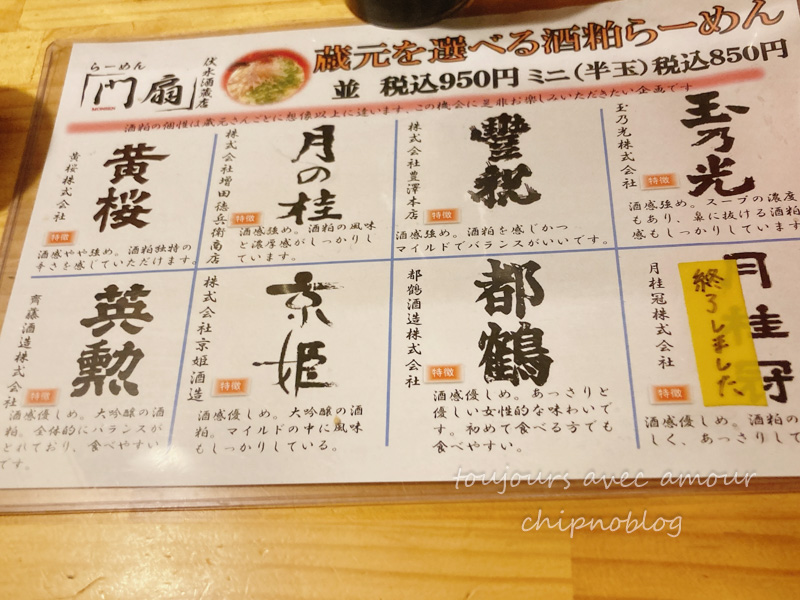 蔵元を選べる酒粕らーめん
並 税込950円 ミニ(半玉)税込850円
らーめん
「門扇」
伏水酒蔵店
酒粕の個性は蔵元さんごとに想像以上に違います。この機会に是非お楽しみいただきたい企画です
黄桜
黄桜株式会社
特徴
酒感やや強め。酒粕独特の
辛さを感じていただけます。
月の桂
株式会社増田德兵衛商店
特徴
酒感強め。酒粕の風味
と濃厚感がしっかりし
ています。
豐祝
株式会社豊澤本店
特徴
酒感強め。酒粕を感じかつ
マイルドでバランスがいいです。
玉乃光
玉乃光株式会社
特徴
酒感強め。スープの濃度
もあり、鼻に抜ける酒粕
感もしっかりしています
英勲
齊藤酒造株式会社
特徴
酒感優しめ。大吟醸の酒
粕。全体的にバランスが
とれており、食べやすい
です。
京姫
株式会社京姫酒造
特徴
酒感優しめ。大吟醸の酒
粕。マイルドの中に風味
もしっかりしている。
都鶴
都鶴酒造株式会社
特徴
酒感優しめ。あっさりと
優しい女性的な味わいで
す。初めて食べる方でも
食べやすい。
月桂冠
月桂冠株式会社
終了しました
特徴
酒感優しめ。酒粕の
しく、あっさりして
toujours avec amour
chipnoblog